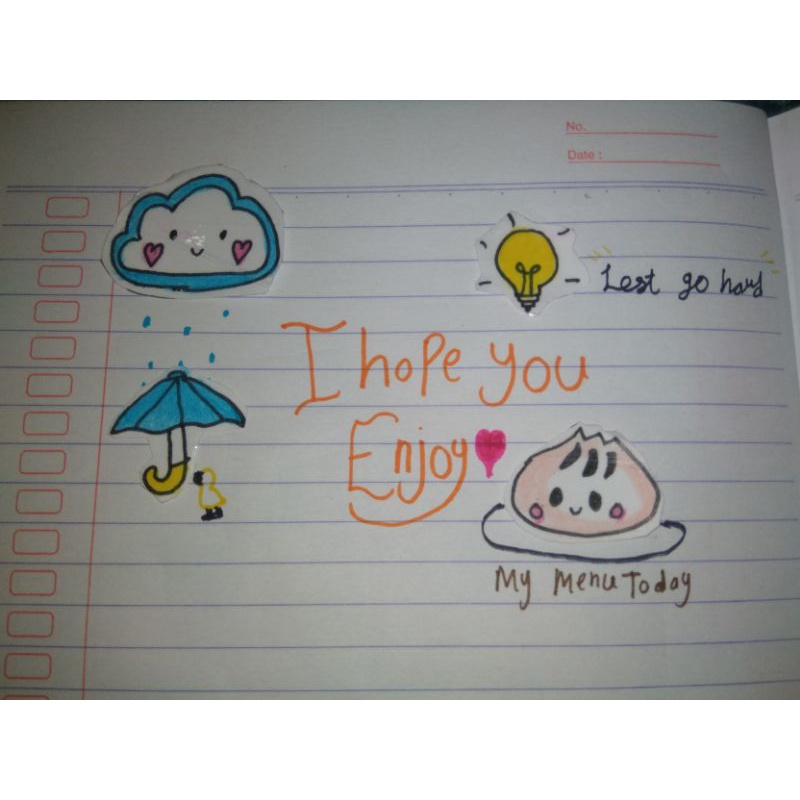 No.
Date :
Lest go hard
I hope you
Enjoy
My Menu Today